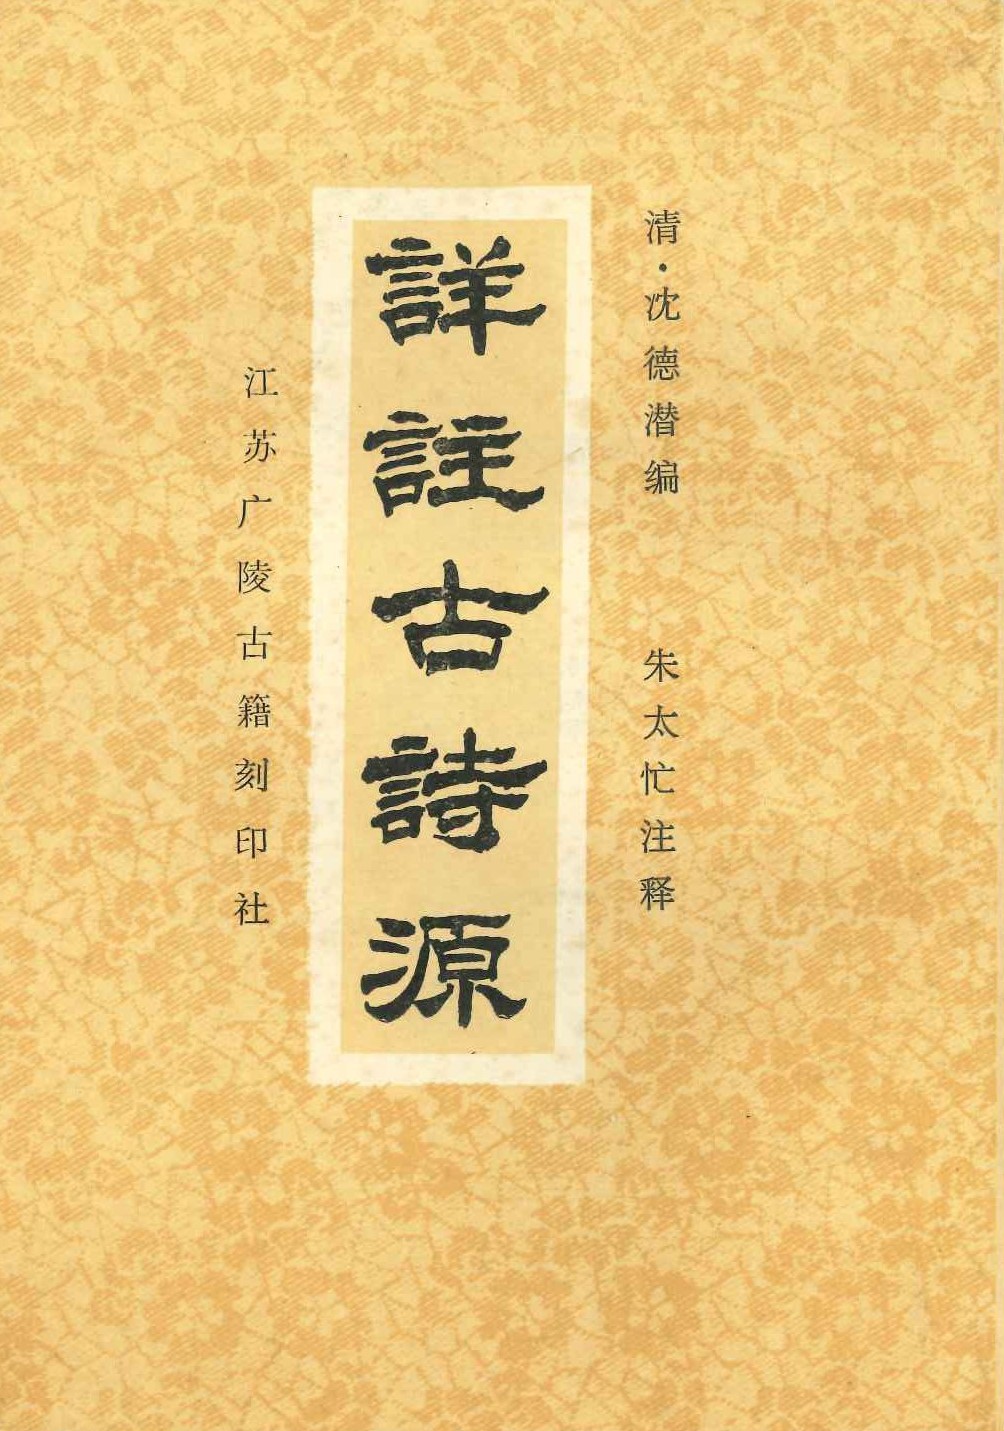 清·沈德潜编 朱太忙注释
詳註古詩源
江苏广陵古籍刻印社